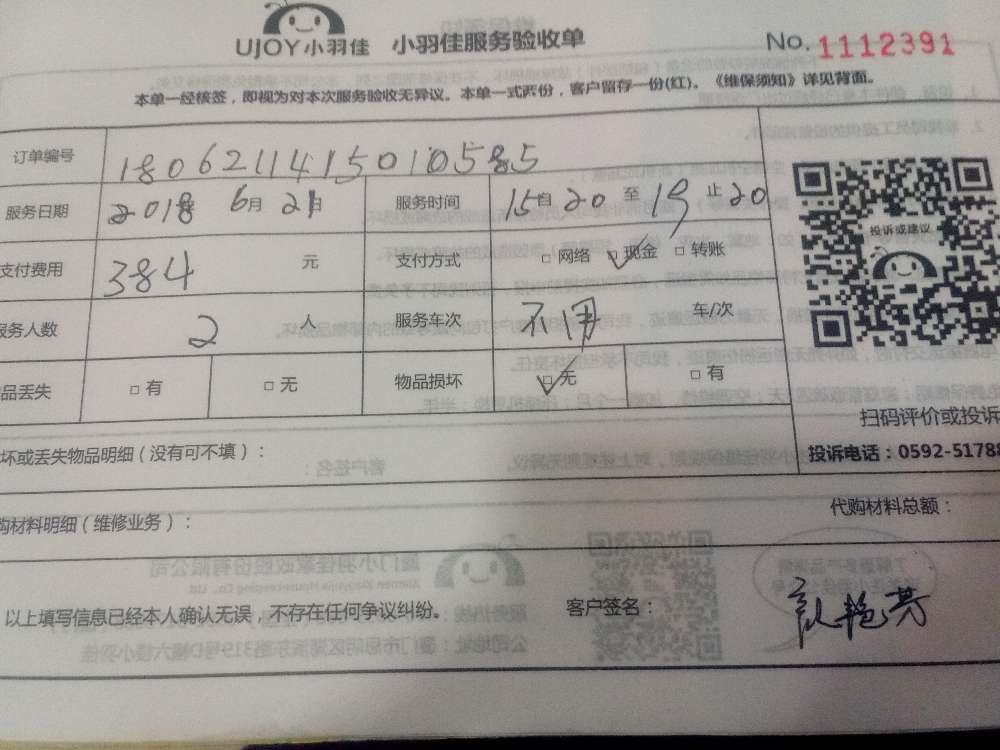 UJOY小羽佳 小羽佳服务验收单 No. 1112391
本单一经核签，即视为对本次服务验收无异议。本单一式两份，客户留存一份(红)。《维保须知》详见背面。
订单编号 180621141501010585
服务日期 2018 6月21日 服务时间 15自20至19止20
支付费用 384 元 支付方式 □网络 □现金 □转账
服务人数 2 人 服务车次 不用 车/次
品丢失 □有 □无 物品损坏 □无 □有
投诉或建议
扫码评价或投诉
坏或丢失物品明细（没有可不填）： 投诉电话：0592-51788
购材料明细（维修业务）： 代购材料总额：
以上填写信息已经本人确认无误，不存在任何争议纠纷。 客户签名： 艳芳